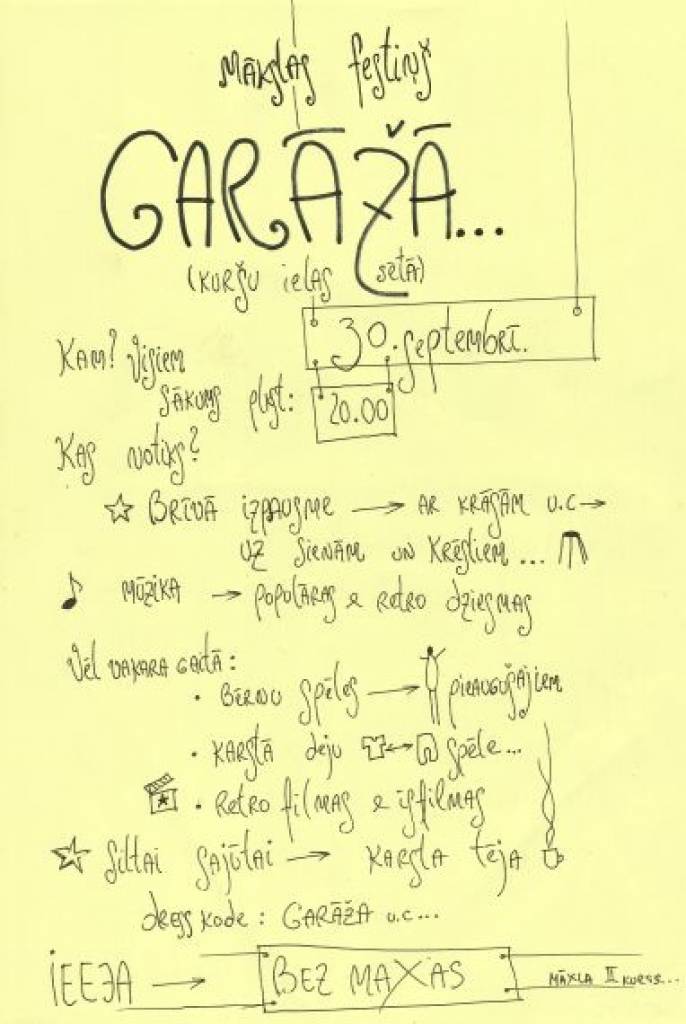 Mākslas festiņš
GARĀŽĀ...
(KURŠU ielas sētā)
30. septembrī.
KAM? Visiem
SĀKUMS plkst: 20.00
Kas notiks?
BRĪVĀ izpausme → AR KRĀSĀM u.c →
UZ SIENĀM UN KRĒSLIEM ...
MŪZIKA → POPULĀRAS & RETRO dziesmas
Vēl vakara gaitā:
• BĒRNU spēles → pieaugušajiem
• KARSTĀ deju ↔ spēle...
• Retro filmas & īsfilmas
Siltai sajūtai → KARSTA tēja
dress kode: GARĀŽA u.c...
IEEJA → BEZ MAXAS
MĀXLA II KURSS...